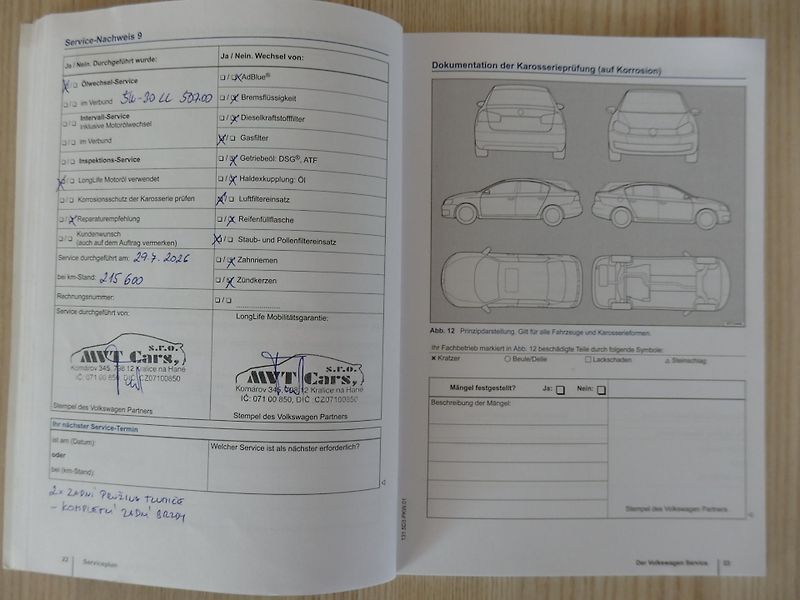 Service-Nachweis 9
Ja / Nein. Durchgeführt wurde:
Ja / Nein. Wechsel von:
Ölwechsel-Service
im Verbund 5W-30 LL 50700
Intervall-Service
inklusive Motorölwechsel
im Verbund
Inspektions-Service
LongLife Motoröl verwendet
Korrosionsschutz der Karosserie prüfen
Reparaturempfehlung
Kundenwunsch
(auch auf dem Auftrag vermerken)
Service durchgeführt am: 29.7.2026
bei km-Stand: 215 600
Rechnungsnummer:
AdBlue®
Bremsflüssigkeit
Dieselkraftstofffilter
Gasfilter
Getriebeöl: DSG®, ATF
Haldexkupplung: Öl
Luftfiltereinsatz
Reifenfüllflasche
Staub- und Pollenfiltereinsatz
Zahnriemen
Zündkerzen
Service durchgeführt von:
s.r.o.
MVT Cars,
Komárov 345, 798 12 Kralice na Hané
IČ: 071 00 850, DIČ: CZ07100850
Stempel des Volkswagen Partners
LongLife Mobilitätsgarantie:
s.r.o.
MVT Cars,
Komárov 345, 798 12 Kralice na Hané
IČ: 071 00 850, DIČ: CZ07100850
Stempel des Volkswagen Partners
Ihr nächster Service-Termin
ist am (Datum):
oder
bei (km-Stand):
Welcher Service ist als nächster erforderlich?
2x ZADNÍ PRUŽINA TLUMIČE
- KOMPLETNÍ ZADNÍ BRZDY
22 Serviceplan
Dokumentation der Karosserieprüfung (auf Korrosion)
Abb. 12 Prinzipdarstellung. Gilt für alle Fahrzeuge und Karosserieformen.
Ihr Fachbetrieb markiert in Abb. 12 beschädigte Teile durch folgende Symbole:
× Kratzer ○ Beule/Delle □ Lackschaden △ Steinschlag
Mängel festgestellt? Ja: Nein:
Beschreibung der Mängel:
Stempel des Volkswagen Partners
131.5D3.PKW.01
Der Volkswagen Service 23